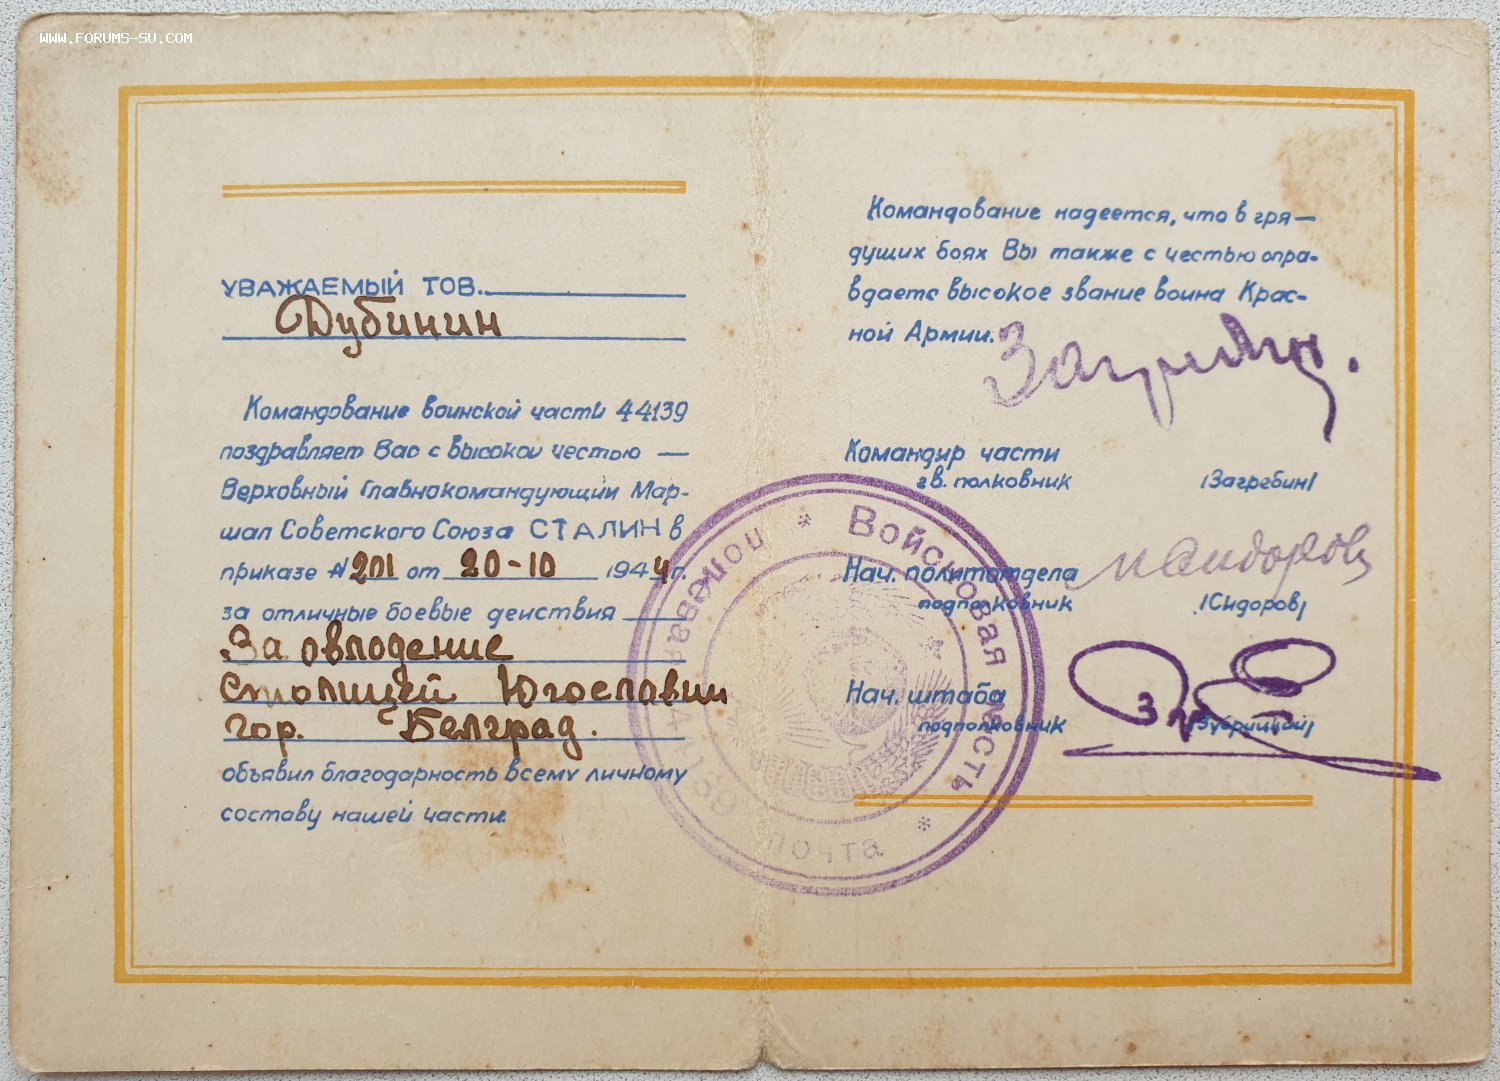 WWW.FORUMS-SU.COM
УВАЖАЕМЫЙ ТОВ.
Дубинин
Командование воинской части 44139
поздравляет Вас с высокой честью —
Верховный Главнокомандующий Мар-
шал Советского Союза СТАЛИН в
приказе № 201 от 20-10 1944 г.
за отличные боевые действия
За овладение
столицей Югославии
гор. Белград.
объявил благодарность всему личному
составу нашей части.
Командование надеется, что в гря—
дущих боях Вы также с честью опра-
вдаете высокое звание воина Крас-
ной Армии.
Загребин.
Командир части
гв. полковник /Загребин/
Нач. политотдела
подполковник /Сидоров/
Нач. штаба
подполковник /Зубрицкий/
* Войсковая часть * полевая почта